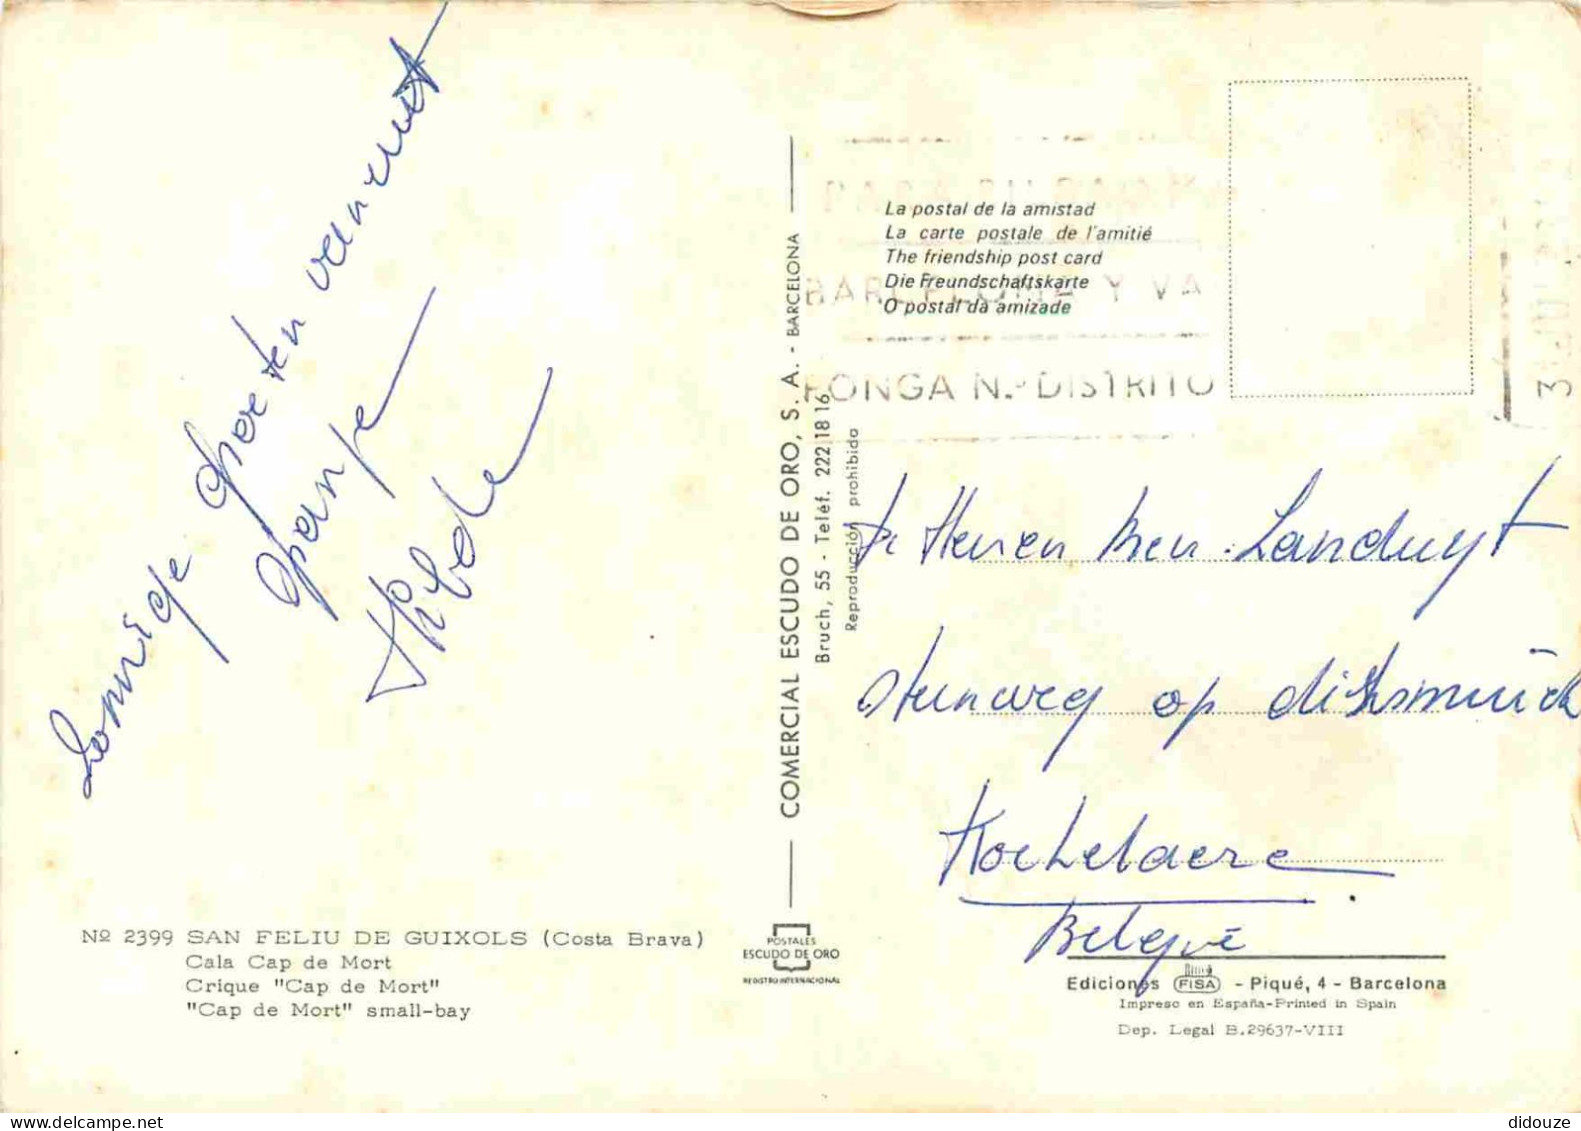 Zonnige groeten vanuit
Spanje
Hilde
Nº 2399 SAN FELIU DE GUIXOLS (Costa Brava)
Cala Cap de Mort
Crique "Cap de Mort"
"Cap de Mort" small-bay
COMERCIAL ESCUDO DE ORO, S. A. - BARCELONA
Bruch, 55 - Teléf. 222 18 16
Reproducción prohibida
POSTALES
ESCUDO DE ORO
REGISTRO INTERNACIONAL
La postal de la amistad
La carte postale de l'amitié
The friendship post card
Die Freundschaftskarte
O postal da amizade
BARCELONA Y VA
PONGA N.º DISTRITO
Landuyt
steenweg op
Koekelaere
Belgïe
Ediciones FISA - Piqué, 4 - Barcelona
Impreso en España-Printed in Spain
Dep. Legal B.29637-VIII
didouze